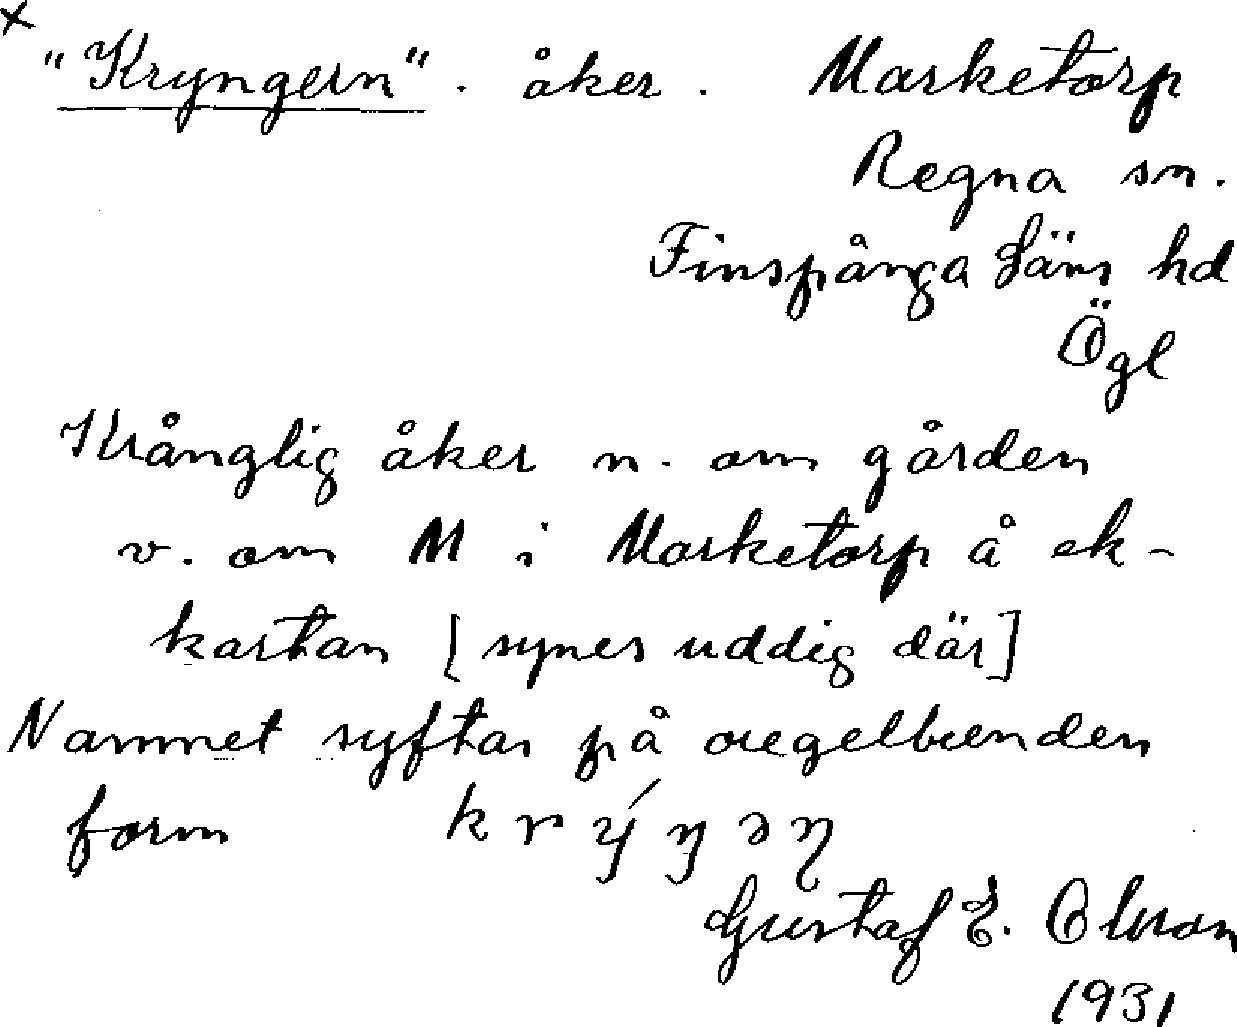 × "Kryngern". åker. Marketorp
Regna sn.
Finspånga läns hd
Ögl
Krånglig åker n. om gården
v. om M i Marketorp å ek-
kartan [synes uddig där]
Namnet syftar på oregelbunden
form krýŋəɳ
Gustaf E. Olsson
1931